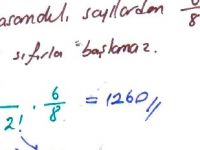 sayılardan 6/8
sıfırla başlamaz.
/2! · 6/8 = 1260//